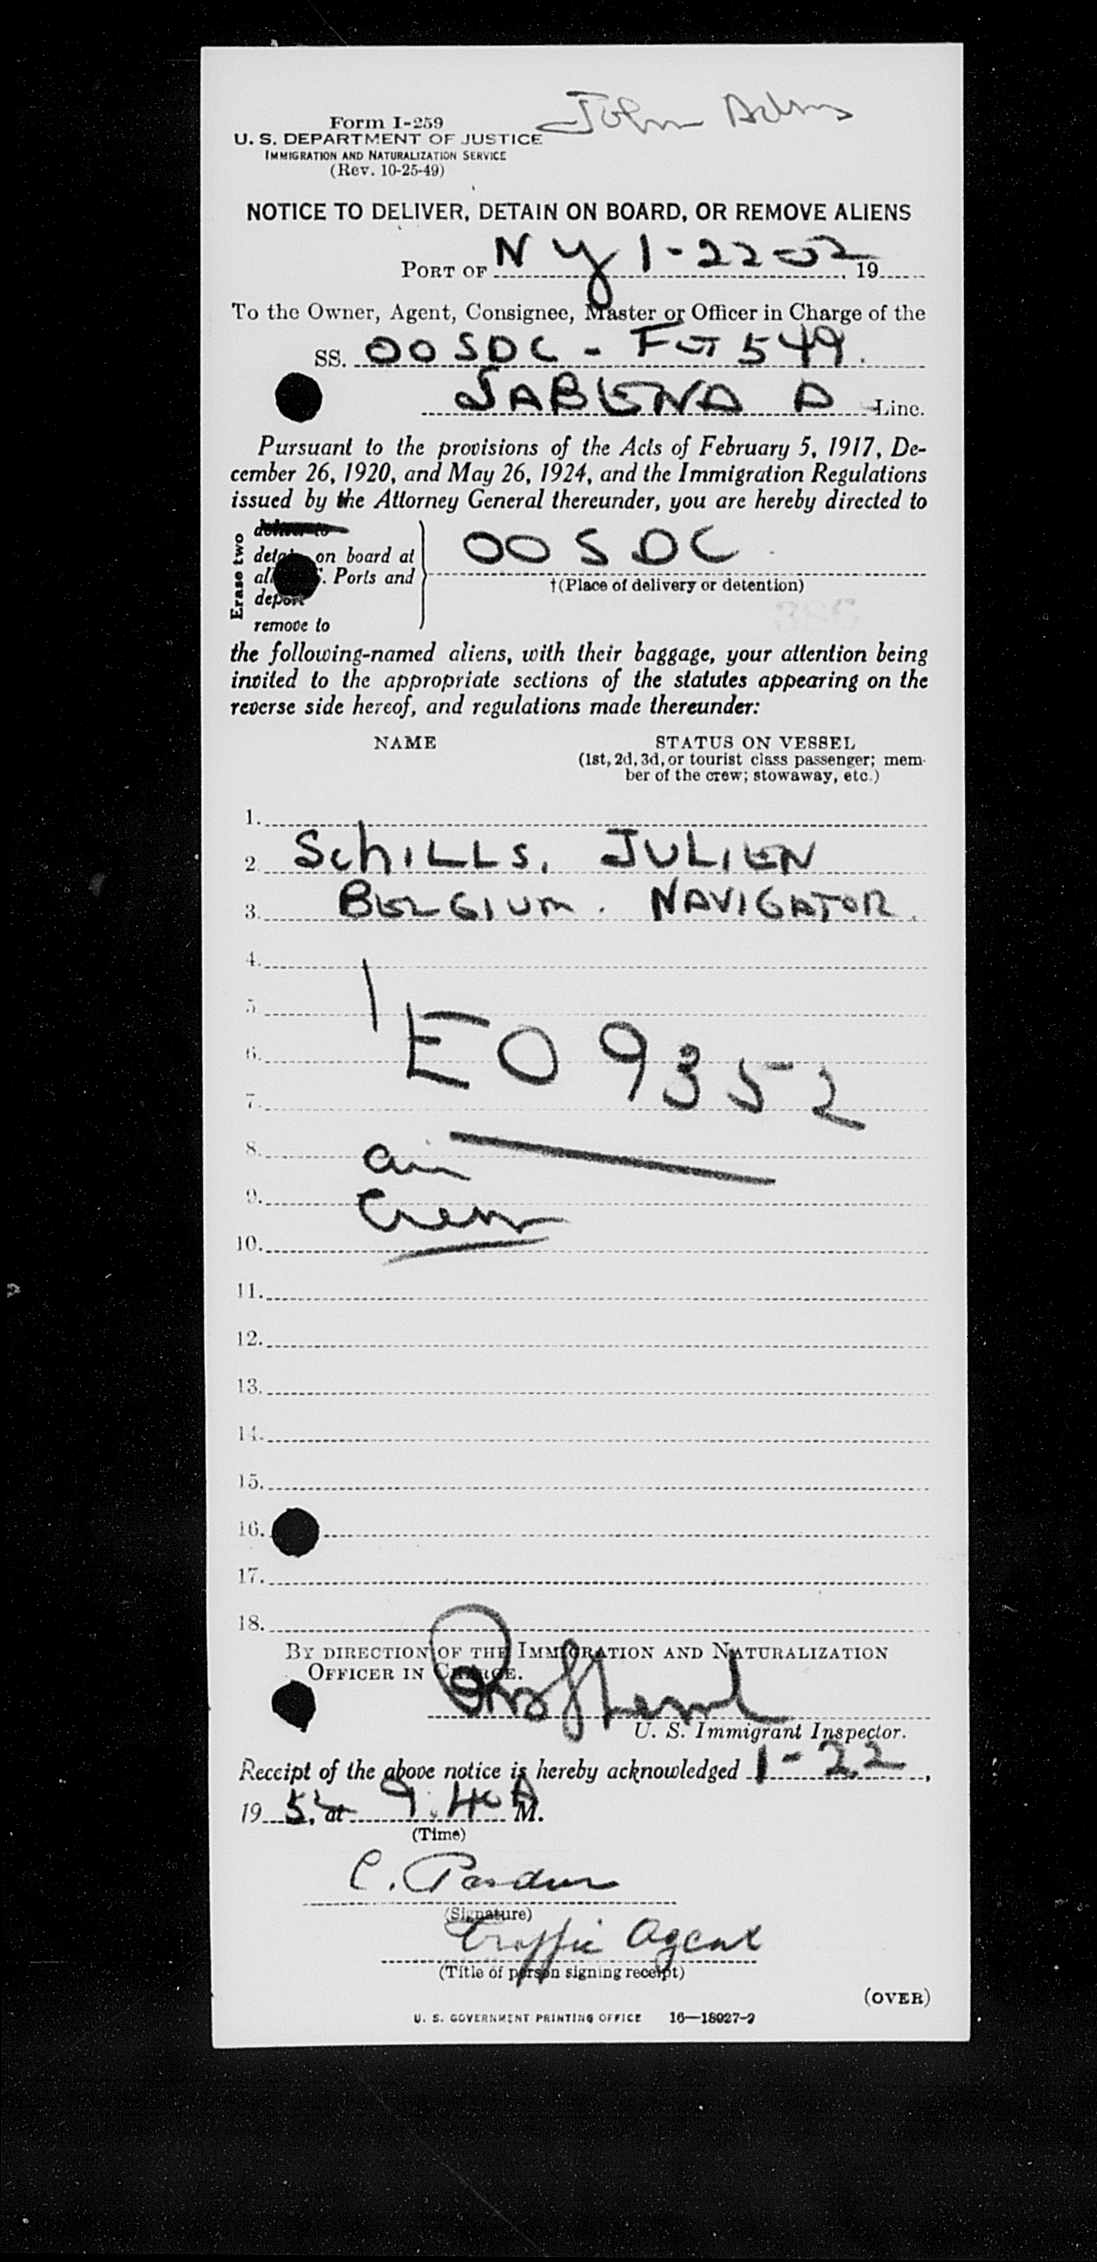 John Adms
Form I-259
U. S. DEPARTMENT OF JUSTICE
IMMIGRATION AND NATURALIZATION SERVICE
(Rev. 10-25-49)
NOTICE TO DELIVER, DETAIN ON BOARD, OR REMOVE ALIENS
PORT OF N Y 1-22-52, 19
To the Owner, Agent, Consignee, Master or Officer in Charge of the
SS. OO SDC - FLT 549.
SABENA A Line.
Pursuant to the provisions of the Acts of February 5, 1917, De-
cember 26, 1920, and May 26, 1924, and the Immigration Regulations
issued by the Attorney General thereunder, you are hereby directed to
Erase two
deliver to
detain on board at
all U. S. Ports and
deport
remove to
OO SDC
†(Place of delivery or detention)
the following-named aliens, with their baggage, your attention being
invited to the appropriate sections of the statutes appearing on the
reverse side hereof, and regulations made thereunder:
NAME STATUS ON VESSEL
(1st, 2d, 3d, or tourist class passenger; mem-
ber of the crew; stowaway, etc.)
1.
2. SchILLS, JULIEN
3. BELGIUM. NAVIGATOR.
4.
5.
6. EO 9352
7.
8. air
9. Crew
10.
11.
12.
13.
14.
15.
16.
17.
18.
BY DIRECTION OF THE IMMIGRATION AND NATURALIZATION
OFFICER IN CHARGE.
U. S. Immigrant Inspector.
Receipt of the above notice is hereby acknowledged 1-22,
1952, at 9:40 A M.
(Time)
(Signature)
Traffic Agent
(Title of person signing receipt)
(OVER)
U. S. GOVERNMENT PRINTING OFFICE 16—18027-2